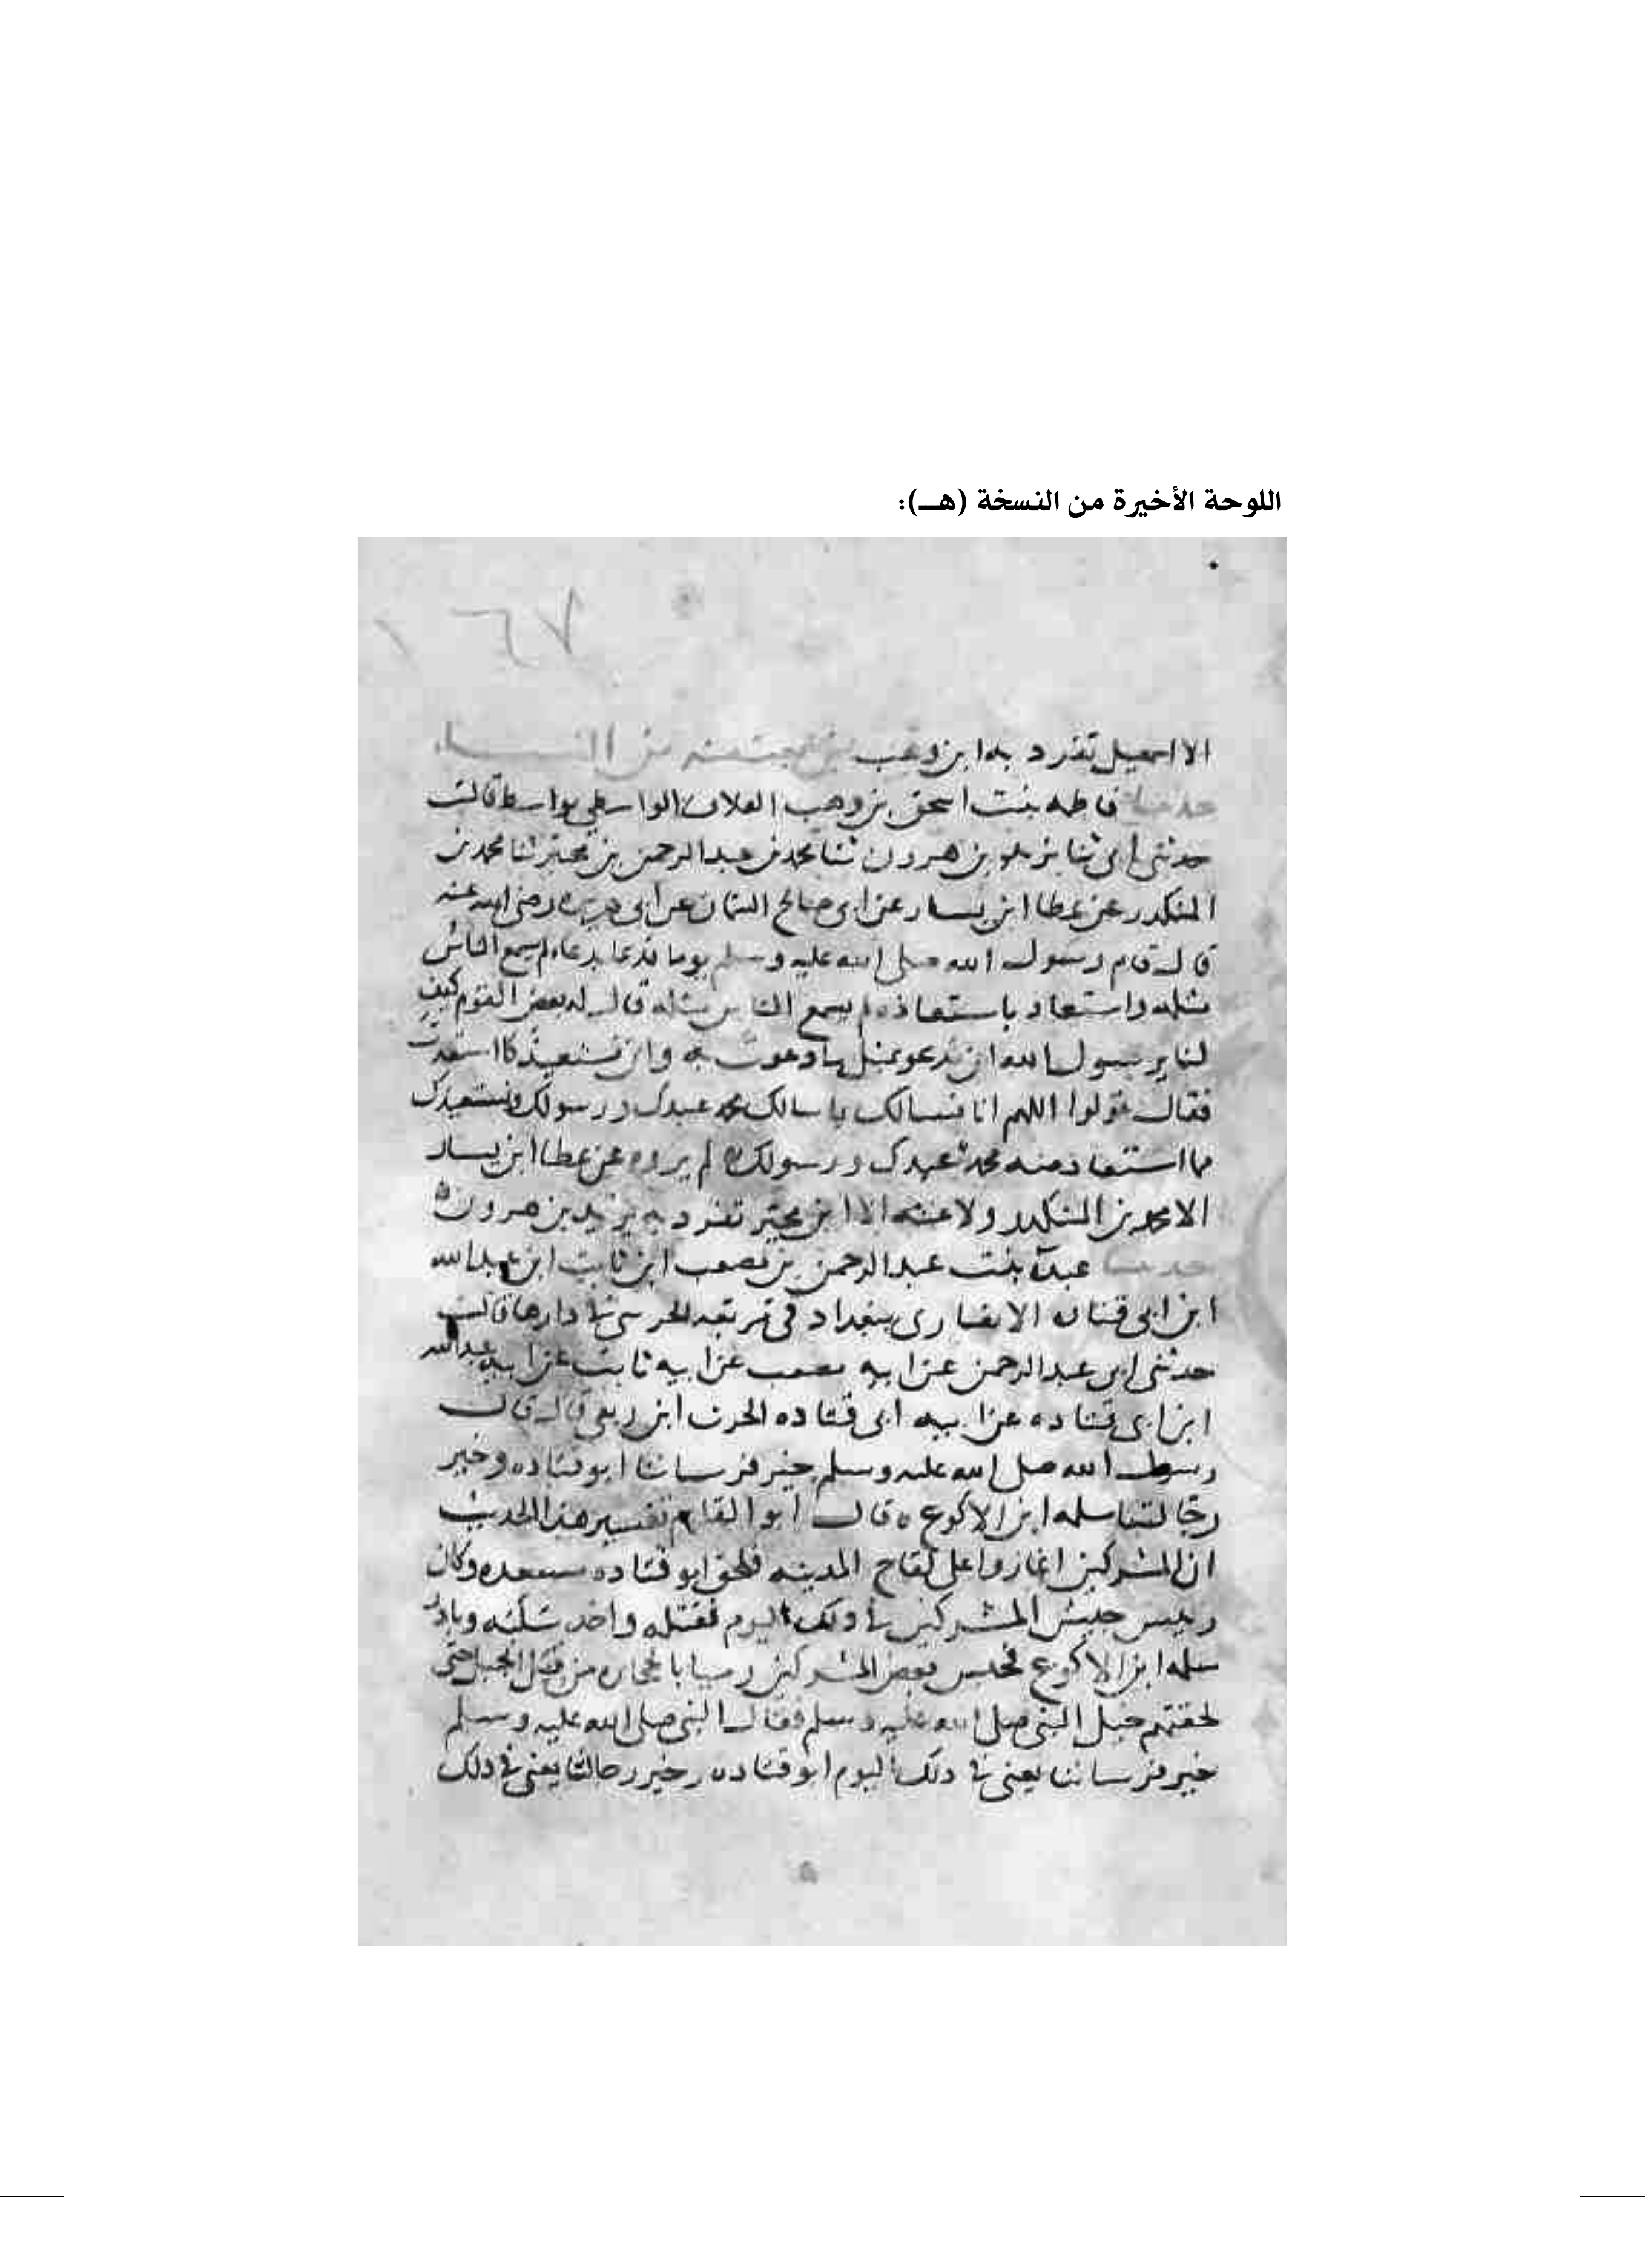 اللوحة الأخيرة من النسخة (هـ):
١٦٧
الا اسمعيل تفرد به ابن وهب من النساء
حدثنا فاطمه بنت اسحق بن وهب العلاف الواسطي بواسط قالت
حدثني ابي ثنا يزيد بن هرون ثنا محمد بن عبد الرحمن بن مجبر ثنا محمد بن
المنكدر عن عطا ابن يسار عن ابي صالح السمان عن ابي هريره رضي الله عنه
قال قام رسول الله صلى الله عليه وسلم يوما فدعا بدعا لم يسمع الناس
مثله واستعاذ باستعاذه لم يسمع الناس مثله قال له بعض القوم كيف
لنا يرسول الله ان ندعو بمثل ما دعوت به وان نستعيذ كما استعذت
فقال قولوا اللهم انا نسالك بما سالك محمد عبدك ورسولك ونستعيذك
مما استعاذ منه محمد عبدك ورسولك لم يروه عن عطا ابن يسار
الا محمد بن المنكدر ولا عنه الا ابن مجبر تفرد به يزيد بن هرون
حدثنا عبدة بنت عبد الرحمن بن مصعب ابن ثابت ابن عبد الله
ابن ابي قتاده الانصاري ببغداد في في دارها قالت
حدثني ابي عبد الرحمن عن ابيه مصعب عن ابيه ثابت عن ابيه عبد الله
ابن ابي قتاده عن ابيه ابي قتاده الحرث ابن ربعي قال قال
رسول الله صلى الله عليه وسلم خير فرساننا ابو قتاده وخير
رجالتنا سلمه ابن الاكوع ه قال ابو القاسم تفسير هذا الحديث
ان المشركين اغاروا على لقاح المدينه فلحق ابو قتاده مسعده وكان
رييس جيش المشركين في ذلك اليوم فقتله واخذ سلبه وبادر
سلمه ابن الاكوع فحبس بعض المشركين رميا بالحجاره من قبل الجبل حتى
لحقتهم خيل النبي صلى الله عليه وسلم فقال النبي صلى الله عليه وسلم
خير فرساننا يعني في ذلك اليوم ابو قتاده وخير رجالتنا يعني في ذلك